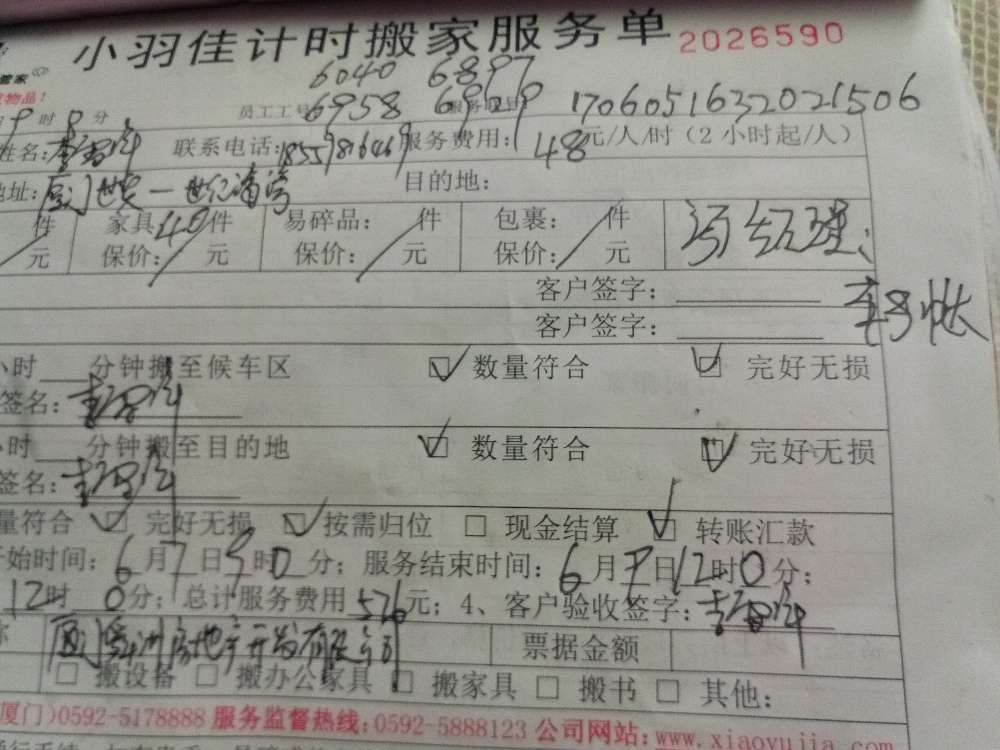 小羽佳计时搬家服务单 2026590
管家
物品!
6040 6897
时 分 员工工号 6958 6929 1706051632021506
姓名: 联系电话: 服务费用: 48元/人/时（2小时起/人）
地址: 目的地:
件 家具40件 易碎品: 件 包裹: 件
元 保价: 元 保价: 元 保价: 元
客户签字:
客户签字:
小时 分钟搬至候车区 数量符合 完好无损
签名:
小时 分钟搬至目的地 数量符合 完好无损
签名:
量符合 完好无损 按需归位 现金结算 转账汇款
开始时间: 6月7日9时0分; 服务结束时间: 6月7日12时0分;
12时0分; 总计服务费用576元; 4、客户验收签字:
称 票据金额
搬设备 搬办公家具 搬家具 搬书 其他:
厦门)0592-5178888 服务监督热线:0592-5888123 公司网站:www.xiaoyujia.com